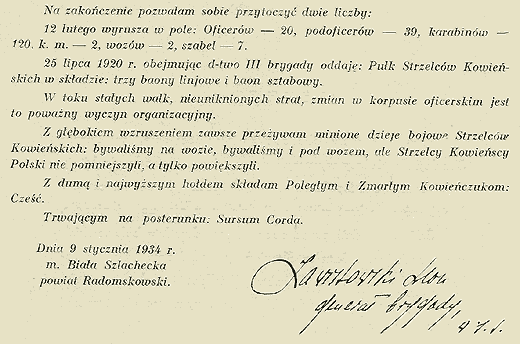 Na zakończenie pozwalam sobie przytoczyć dwie liczby:
12 lutego wyrusza w pole: Oficerów — 20, podoficerów — 39, karabinów —
120. k. m. — 2, wozów — 2, szabel — 7.
25 lipca 1920 r. obejmując d-two III brygady oddaję: Pułk Strzelców Kowień-
skich w składzie: trzy baony linjowe i baon sztabowy.
W toku stałych walk, nieuniknionych strat, zmian w korpusie oficerskim jest
to poważny wyczyn organizacyjny.
Z głębokiem wzruszeniem zawsze przeżywam minione dzieje bojowe Strzelców
Kowieńskich: bywaliśmy na wozie, bywaliśmy i pod wozem, ale Strzelcy Kowieńscy
Polski nie pomniejszyli, a tylko powiększyli.
Z dumą i najwyższym hołdem składam Poległym i Zmarłym Kowieńczukom:
Cześć.
Trwającym na posterunku: Sursum Corda.
Dnia 9 stycznia 1934 r.
m. Biała Szlachecka
powiat Radomskowski.
generał brygady,